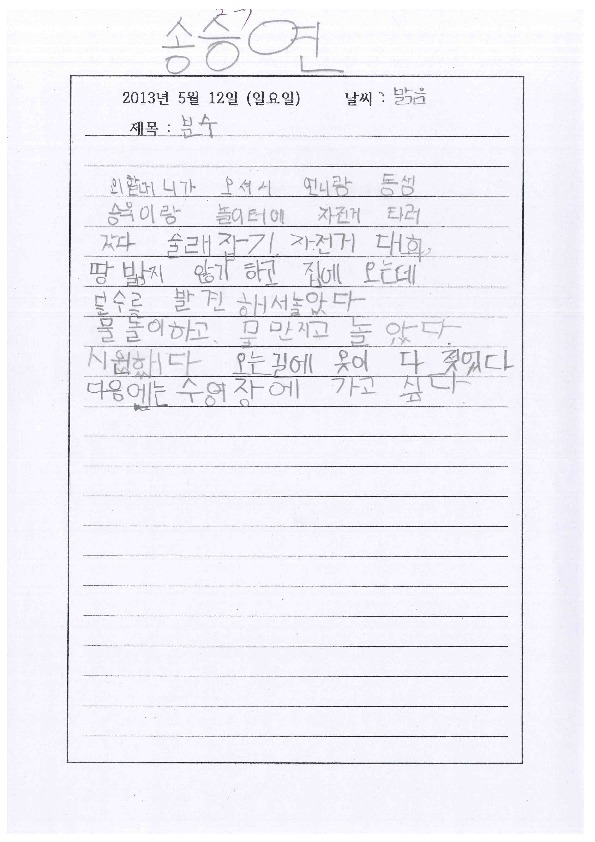 송승연
2013년 5월 12일 (일요일) 날씨 : 밝음
제목 : 분수
외할머니가 오셔서 언니랑 동생
승욱이랑 놀이터에 자전거 타러
갔다 술래잡기, 자전거 대회,
땅 밟지 않기 하고 집에 오는데
분수를 발견해서놀았다
물놀이하고, 물만지고 놀았다.
시원했다 오는길에 옷이 다 젖었다
다음에는 수영장에 가고 싶다